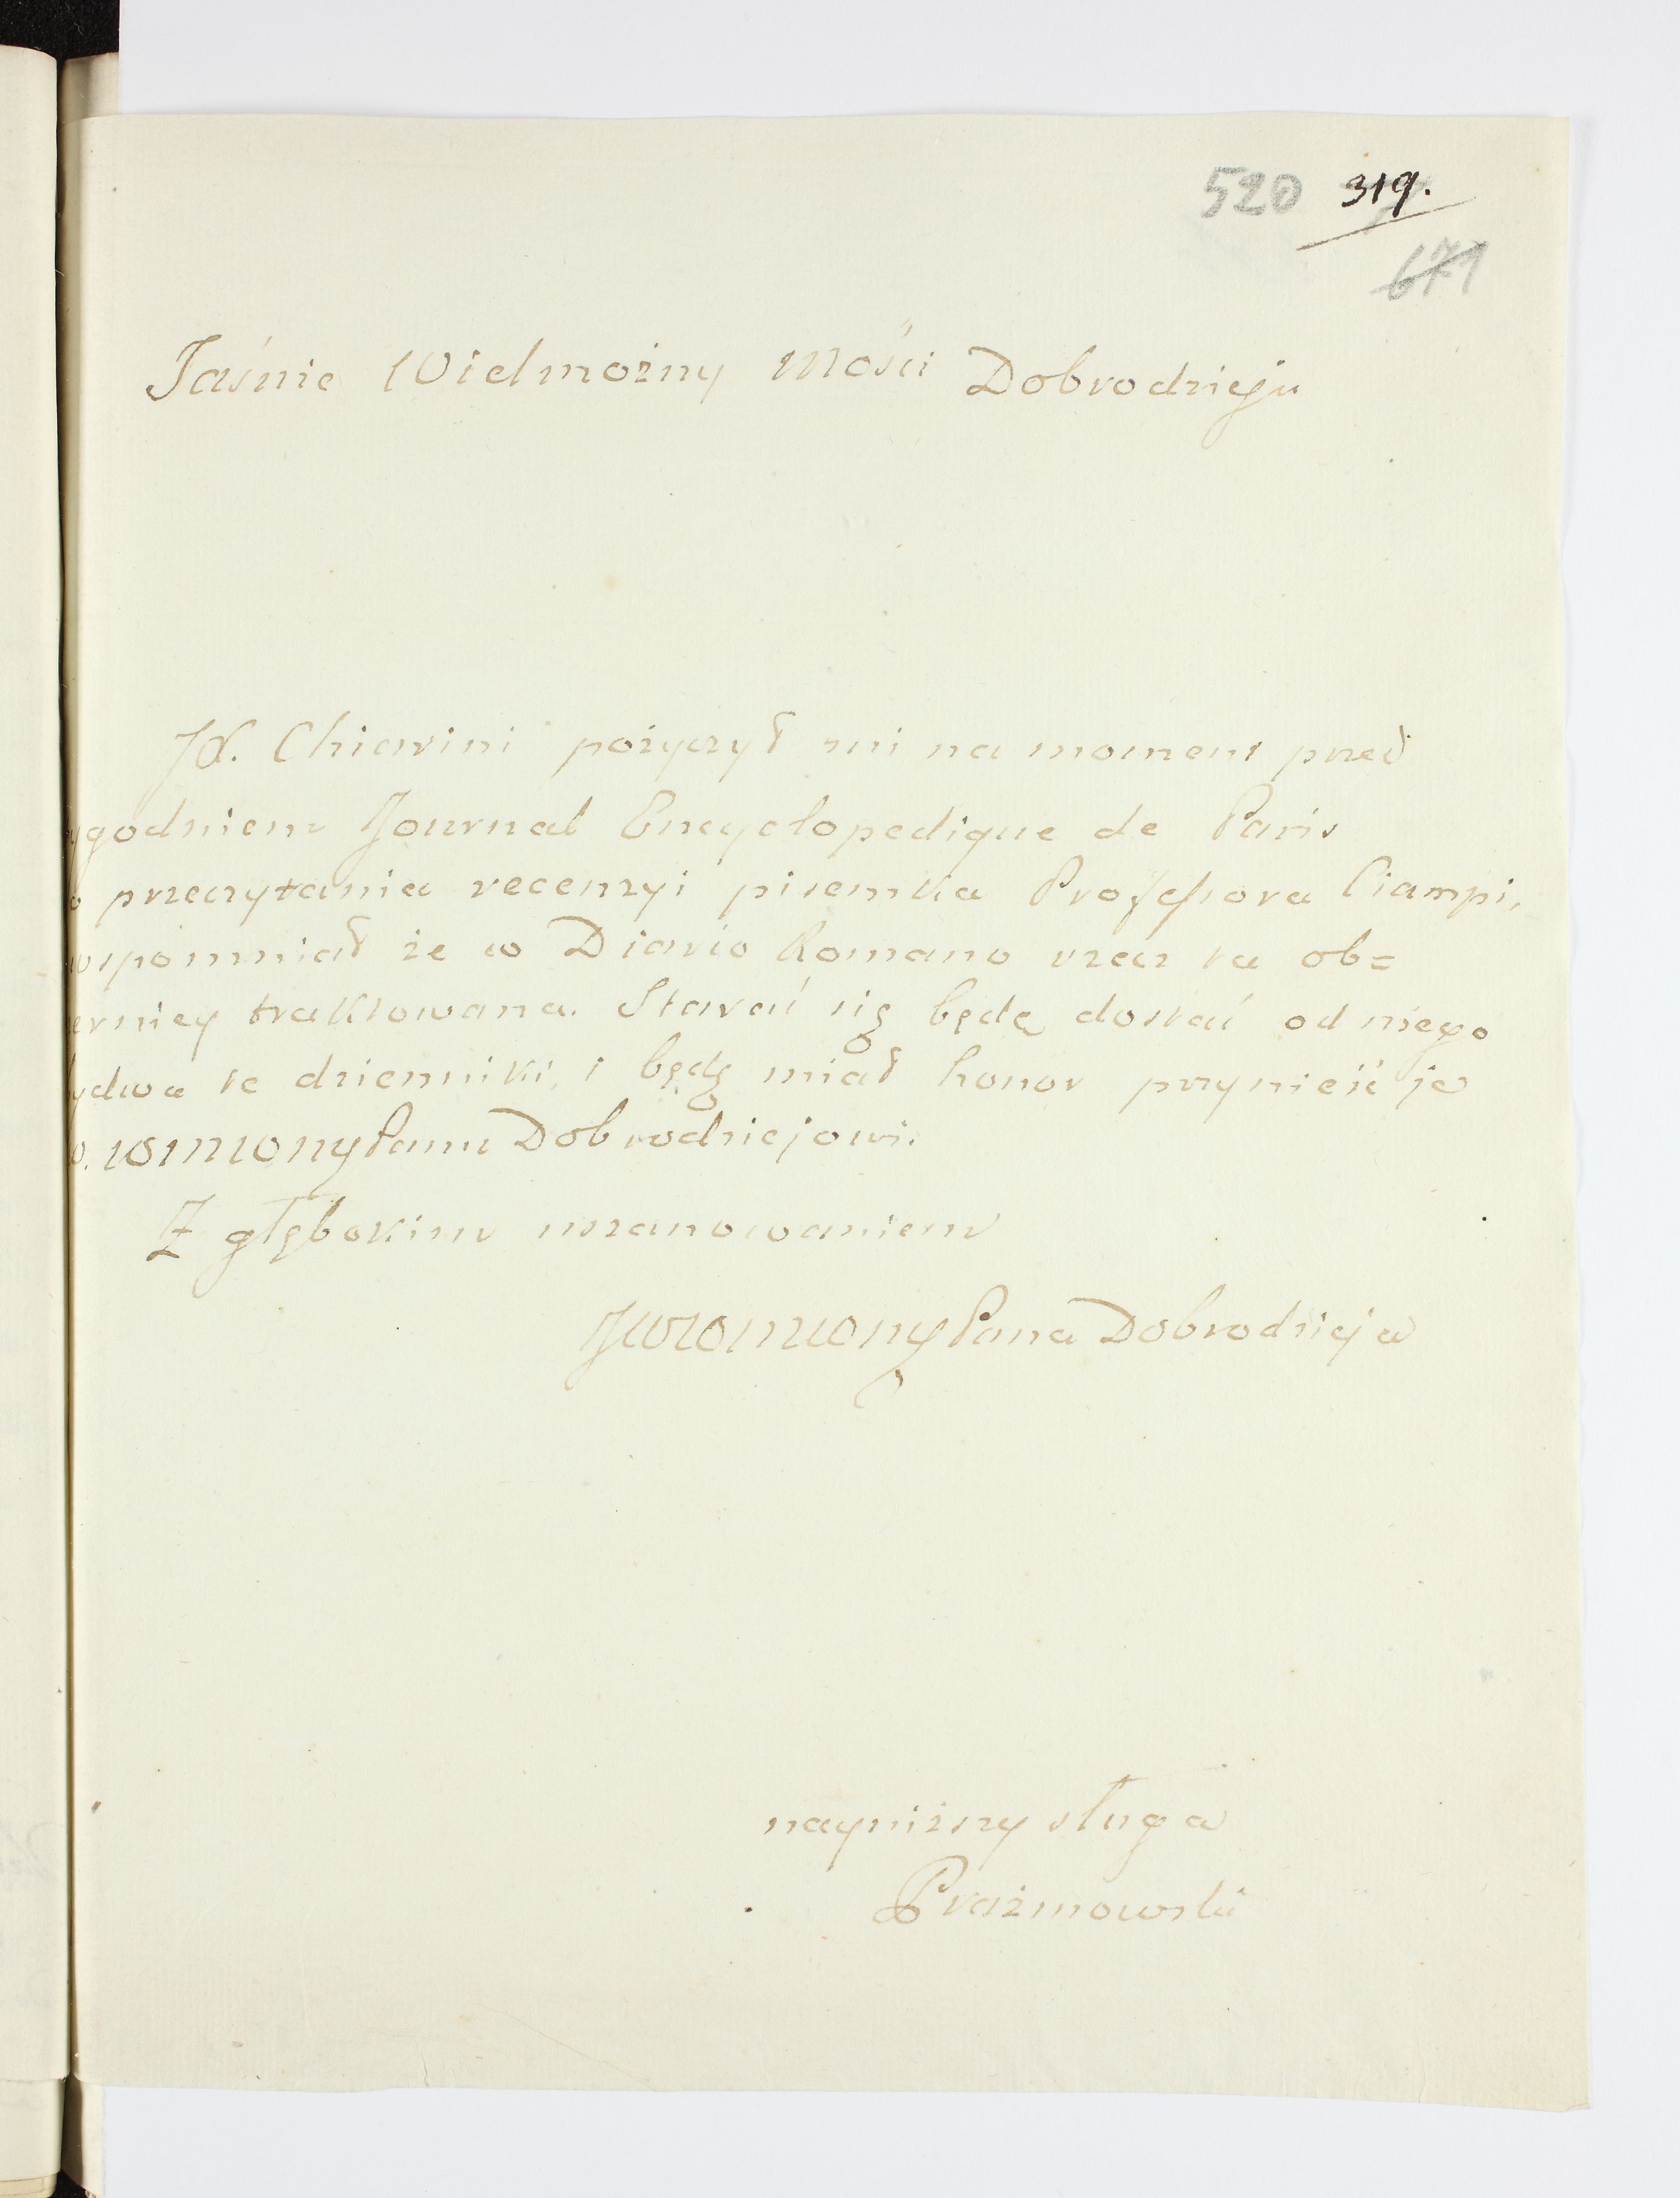 520 319.
671
Jaśnie Wielmożny Mości Dobrodzieju
JX. Chiarini pożyczył mi na moment przed
ygodniem Journal Encyclopedique de Paris
o przeczytania recenzyi pisemka Professora Ciampi,
wspomniał że w Diario Romano rzecz ta ob=
erniey traktowana. Starać się będę dostać od niego
ydwa te dzienniki, i będę miał honor przynieść je
Panu Dobrodziejowi.
Z głębokim uszanowaniem
Pana Dobrodzieja
nayniższy sługa
Prażmowski